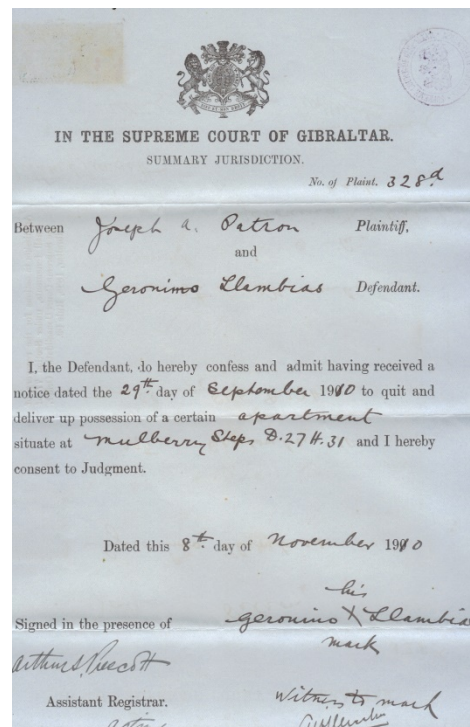 IN THE SUPREME COURT OF GIBRALTAR.
SUMMARY JURISDICTION.
No. of Plaint. 328d
Between Joseph A. Patron Plaintiff,
and
Geronimo Llambias Defendant.
I, the Defendant, do hereby confess and admit having received a
notice dated the 29th day of September 1910 to quit and
deliver up possession of a certain apartment
situate at Mulberry Steps D.27 H.31 and I hereby
consent to Judgment.
Dated this 8th day of November 1910
his
Signed in the presence of Geronimo X Llambias
mark
Arthur S. Prescott
Assistant Registrar. Witness to mark